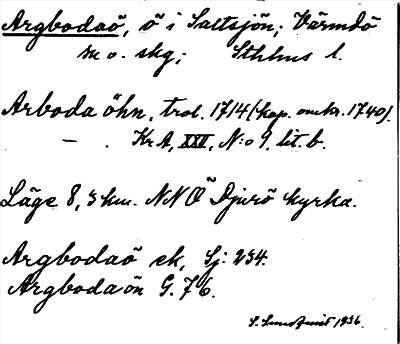 Argbodaö, ö i Saltsjön; Värmdö
sn o. skg; Sthlms l.
Arboda öhn, trol. 1714 (kop. omkr. 1740).
— . KrA, XXI, N:o 9, lit. b.
Läge 8,5 km. NNÖ Djurö kyrka.
Argbodaö ek, Sj: 254.
Argbodaön G. 76.
S. Sundqvist 1936.